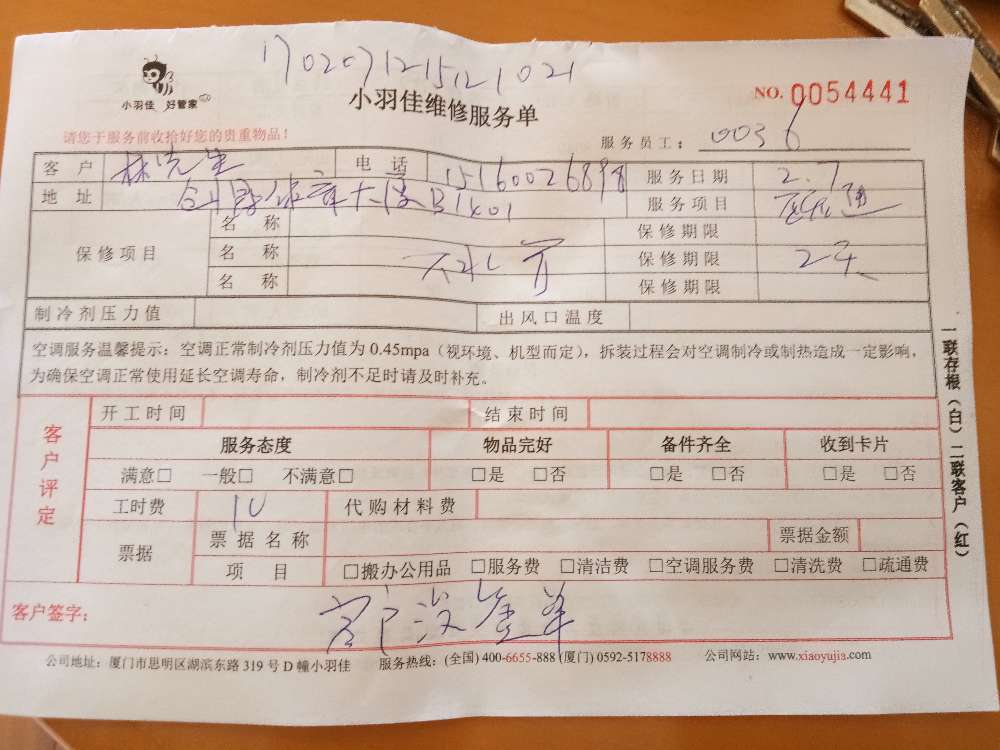 170207121512102
小羽佳 好管家
小羽佳维修服务单
NO. 0054441
请您于服务前收拾好您的贵重物品！
服务员工： 0036
客户 林先生 电话 15160026898 服务日期 2.7
地址 大厦B1401 服务项目
保修项目 名称 保修期限
名称 保修期限 2天
名称 保修期限
制冷剂压力值 出风口温度
空调服务温馨提示：空调正常制冷剂压力值为 0.45mpa（视环境、机型而定），拆装过程会对空调制冷或制热造成一定影响，
为确保空调正常使用延长空调寿命，制冷剂不足时请及时补充。
客户评定
开工时间 结束时间
服务态度 物品完好 备件齐全 收到卡片
满意□ 一般□ 不满意□ □是 □否 □是 □否 □是 □否
工时费 10 代购材料费
票据 票据名称 票据金额
项目 □搬办公用品 □服务费 □清洁费 □空调服务费 □清洗费 □疏通费
客户签字：
公司地址：厦门市思明区湖滨东路 319 号 D 幢小羽佳 服务热线：(全国) 400-6655-888 (厦门) 0592-5178888 公司网站：www.xiaoyujia.com
一联存根（白）二联客户（红）